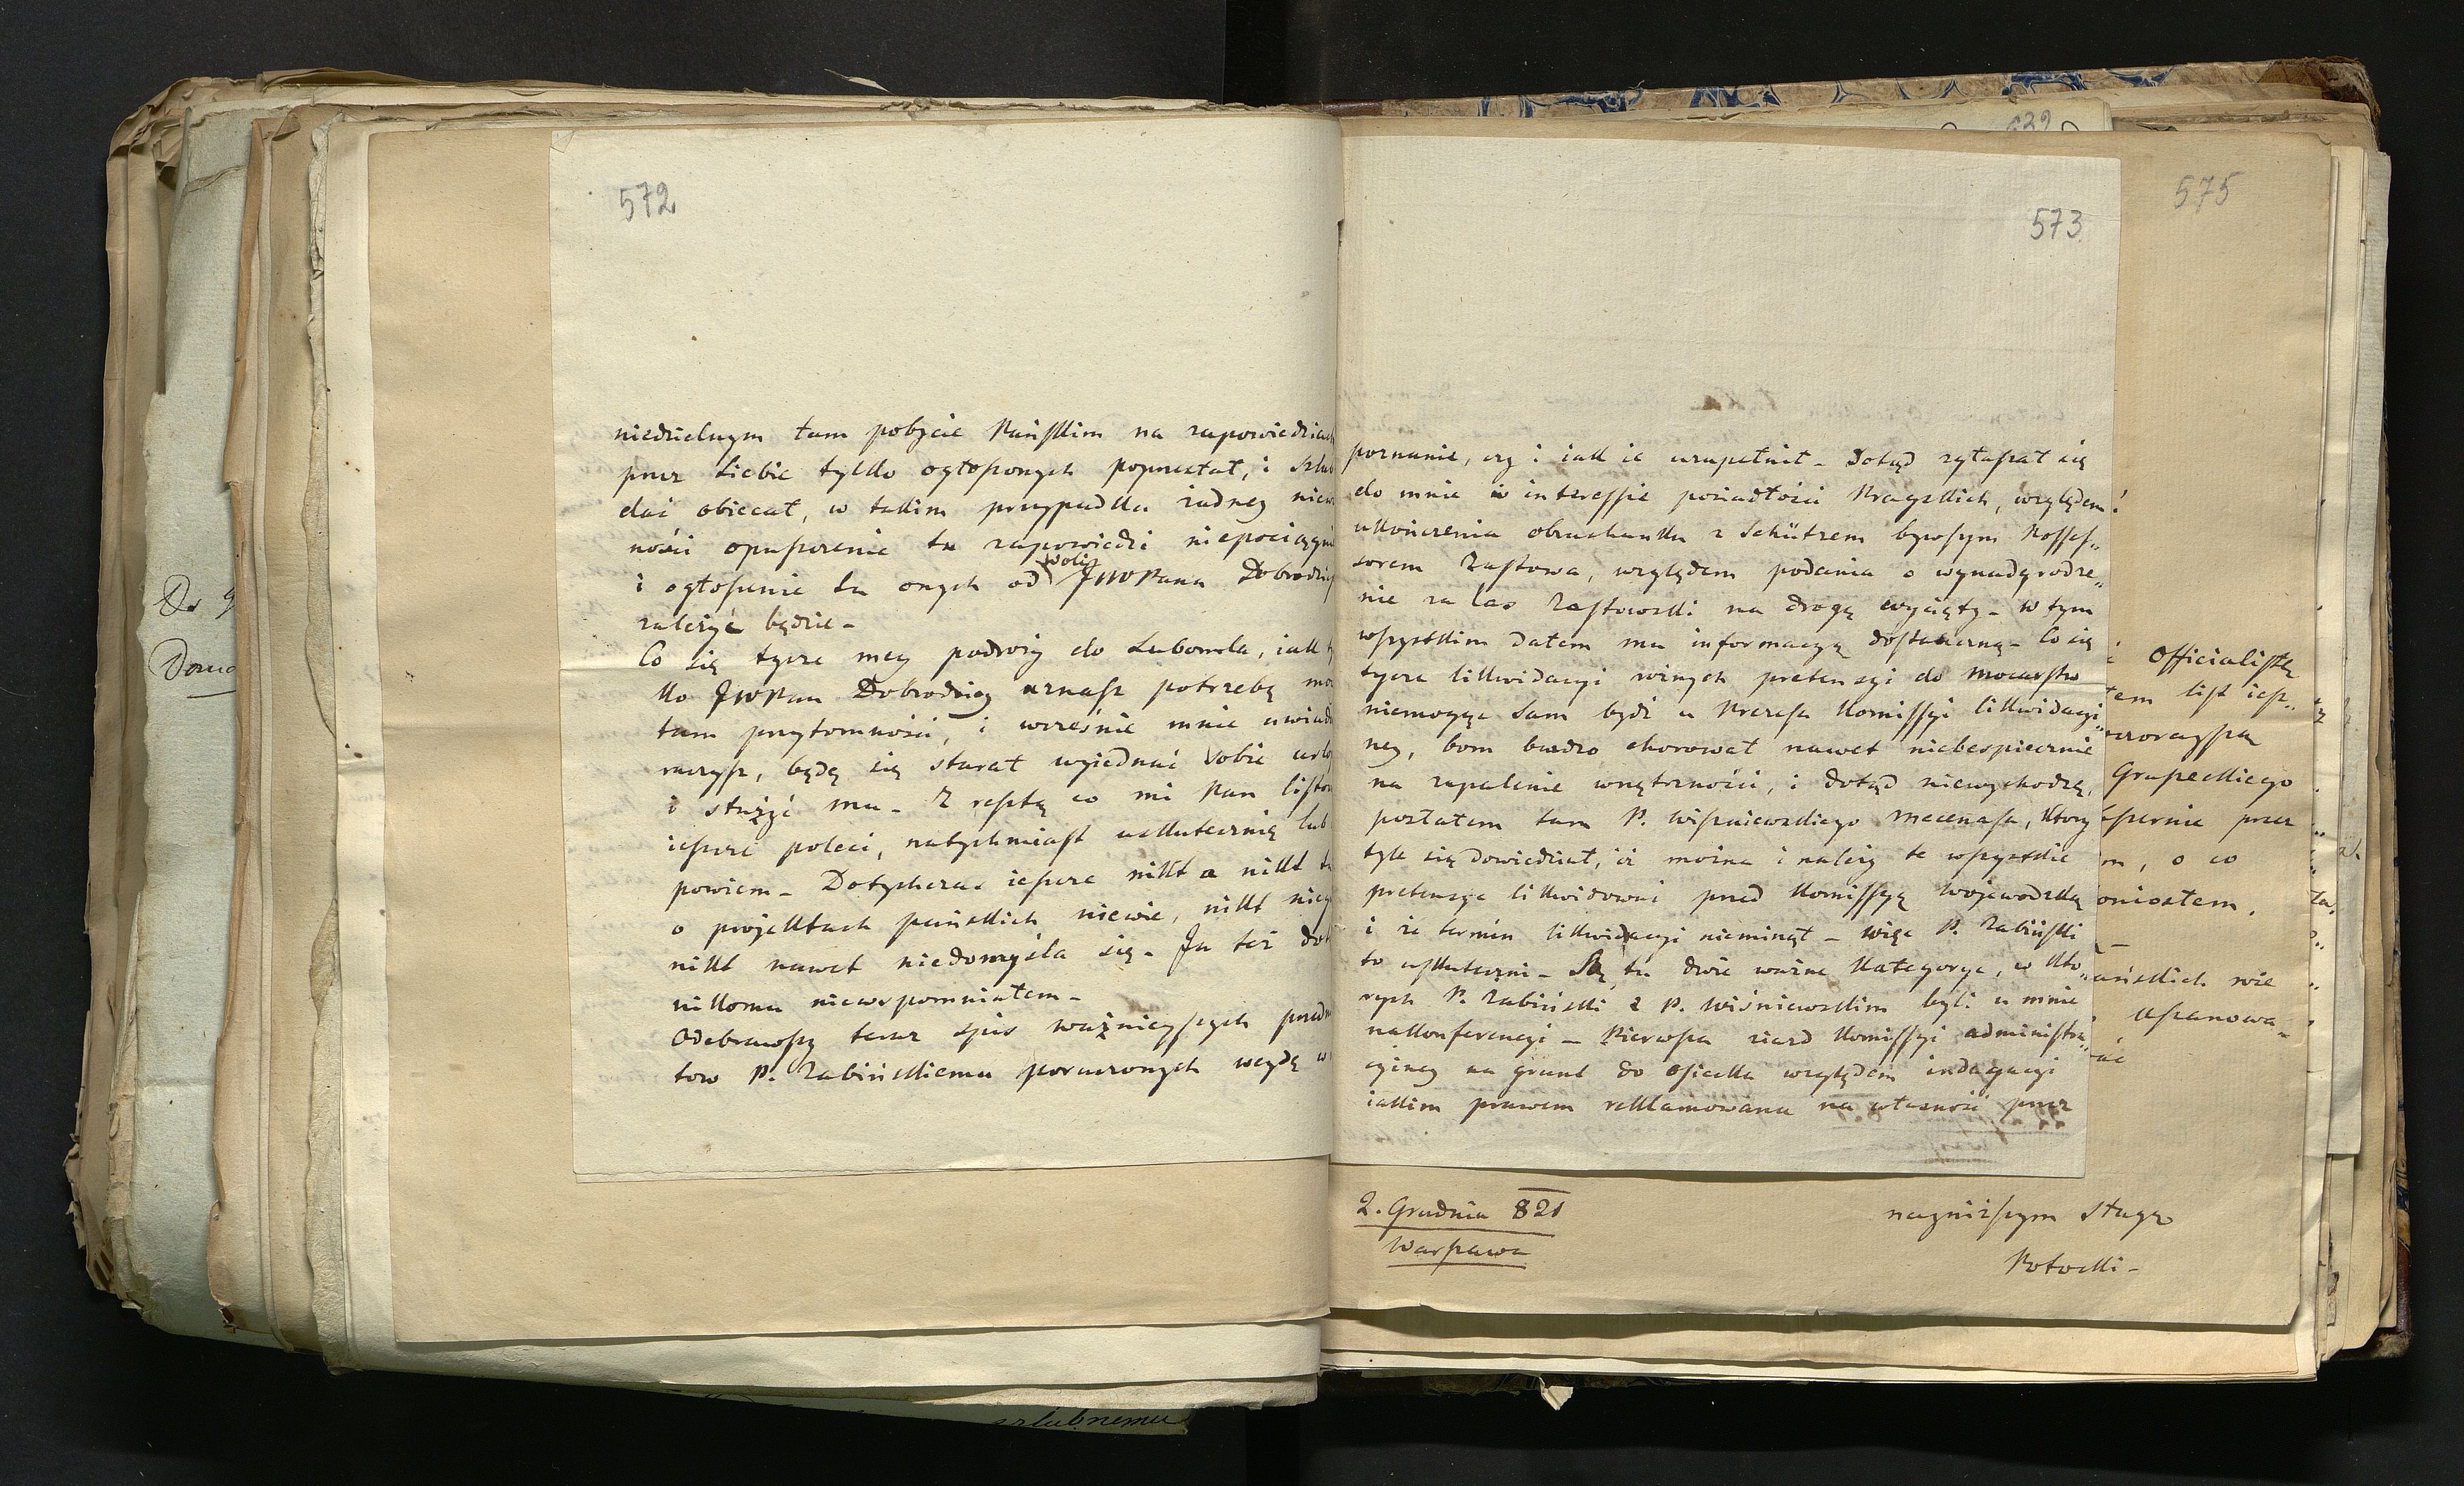 572
niedzielnym tam pobycie Pańskim na zapowiedziach
przez siebie tylko ogłoszonych poprzestał, i szlub
dać obiecał, w takim przypadku żadney nieważ
ności opuszczenie tu zapowiedzi niepociągnie
woli
i ogłoszenie tu onych od JWWPana Dobrodzieja
zależyć będzie –
Co się tycze mey podroży do Lubomla, iak ty
ko JWWPan Dobrodziey uznasz potrzebę mo
tam przytomności, i wcześnie mnie uwiado
raczysz, będę się starał wyiednać sobie urlop
i służyć mu – Z resztą co mi Pan listow
ieszcze poleci, natychmiast uskutecznię lub
powiem – Dotychczas ieszcze nikt a nikt tu
o projektach pańskich niewie, nikt niey
nikt nawet niedomyśla się – Ja też dot
nikomu niewspomniałem –
Odebrawszy teraz spis ważnieyszych przedm
tow P. Żabińskiemu poruczonych weydę w
573
poznanie, czy i iak ie uzupełnił – Dotąd zgłaszał się
do mnie w interessie posiadłości Praystkich, względem
ukończenia obrachunku z Schützem bywszym Posses„
sorem Zastowa, względem podania o wynadgrodze„
nie za las Zastowski na drogę wycięty – W tym
wszystkim dałem mu informacyą dostateczną – Co się
tycze likwidacyi rożnych pretensyi do mocarstw
niemogąc sam bydź u Prezesa Komissyi likwidacyi„
ney, bom bardzo chorował nawet niebezpiecznie
na zapalenie wnętrzności, i dotąd niewychodzę,
posłałem tam P. Wiszniewskiego mecenasa, ktory
tyle się dowiedział, iż można i należy te wszystkie
pretensye likwidować przed Komissyą Woiewodzką
i że termin likwidacyi nieminął – więc P. Żabiński
to uskuteczni – Są tu dwie ważne kategorye, w kto„
rych P. Żabiński z P. Wiśniewskim byli u mnie
na konferencyi – Pierwsza ziazd Komissyi administra„
cyiney na grunt do Osiecka względem indagacyi
iakim prawem reklamowana na własność przez
575
Officialistę
tem list iesz„
Grapeckiego
przez
m, o co
oniosłem.
ańskich nie
uszanowa„
2. Grudnia 821
Warszawa
nayniższym sługą
Potocki –
632
Do
szlubnemu